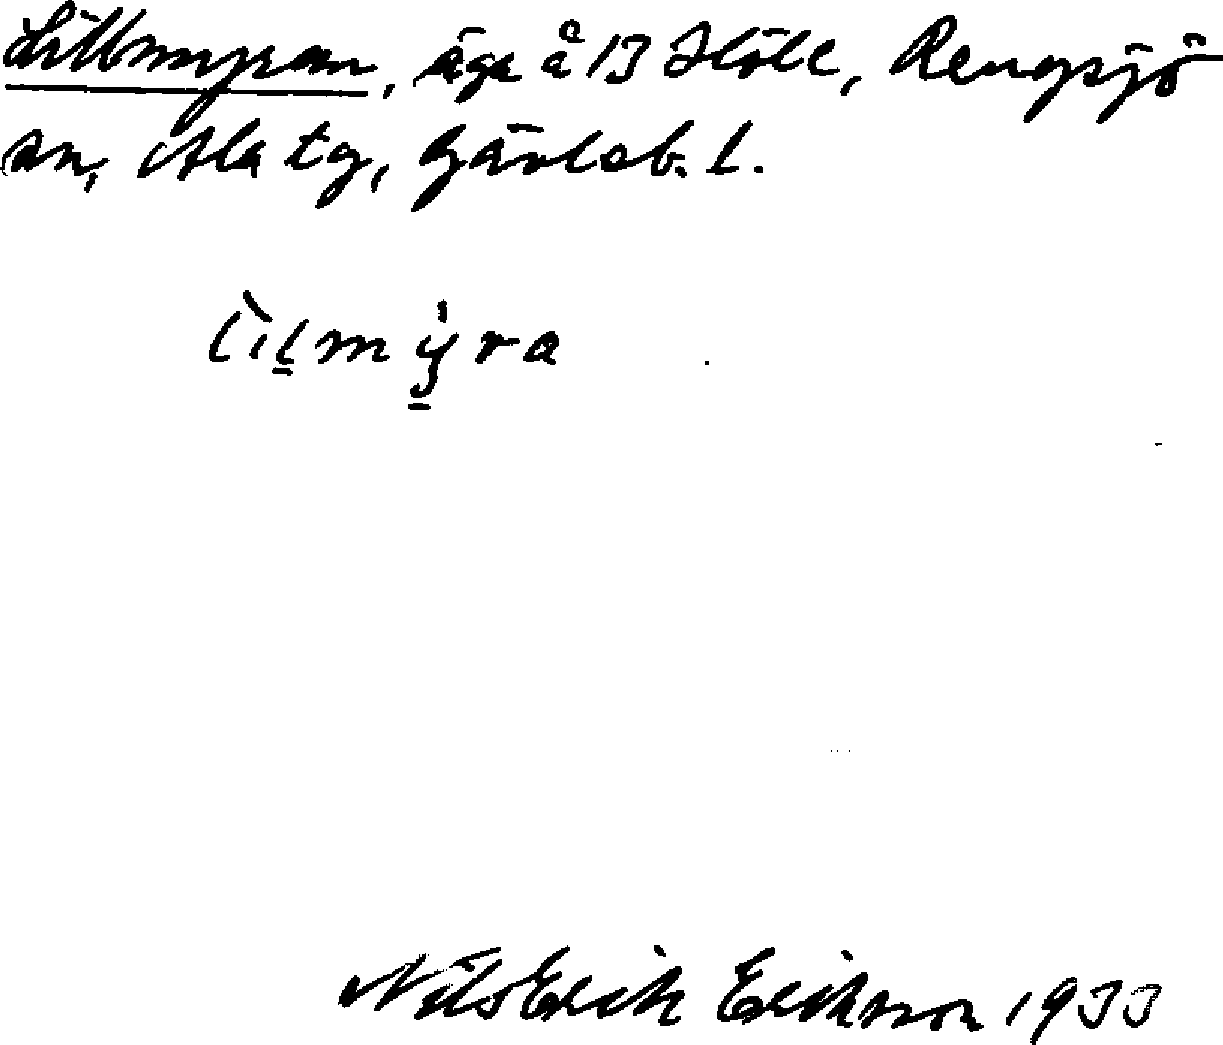 Lillmyran, äga å 13 Höle, Rengsjö
sn, Ala tg, Gävleb. l.
lìlmýra
Nils Erik Eriksson 1933